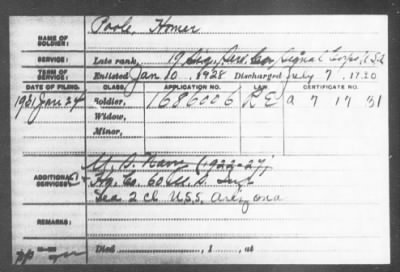 Poole, Homer
NAME OF SOLDIER:
SERVICE: Late rank, 19 Ser. Co., Signal Corps, U S A
TERM OF SERVICE: Enlisted Jan 10, 1928 Discharged July 7, 1920
DATE OF FILING. CLASS. APPLICATION NO. LAW. CERTIFICATE NO.
1931 Jan 24 Soldier, 1686006 R E a 7 17 31
Widow,
Minor,
U. S. Navy (1922-27)
ADDITIONAL SERVICES: Hq. Co. 60 U. S. Inf
Sea 2 cl. U.S.S. Arizona
REMARKS:
Died , 1 , at